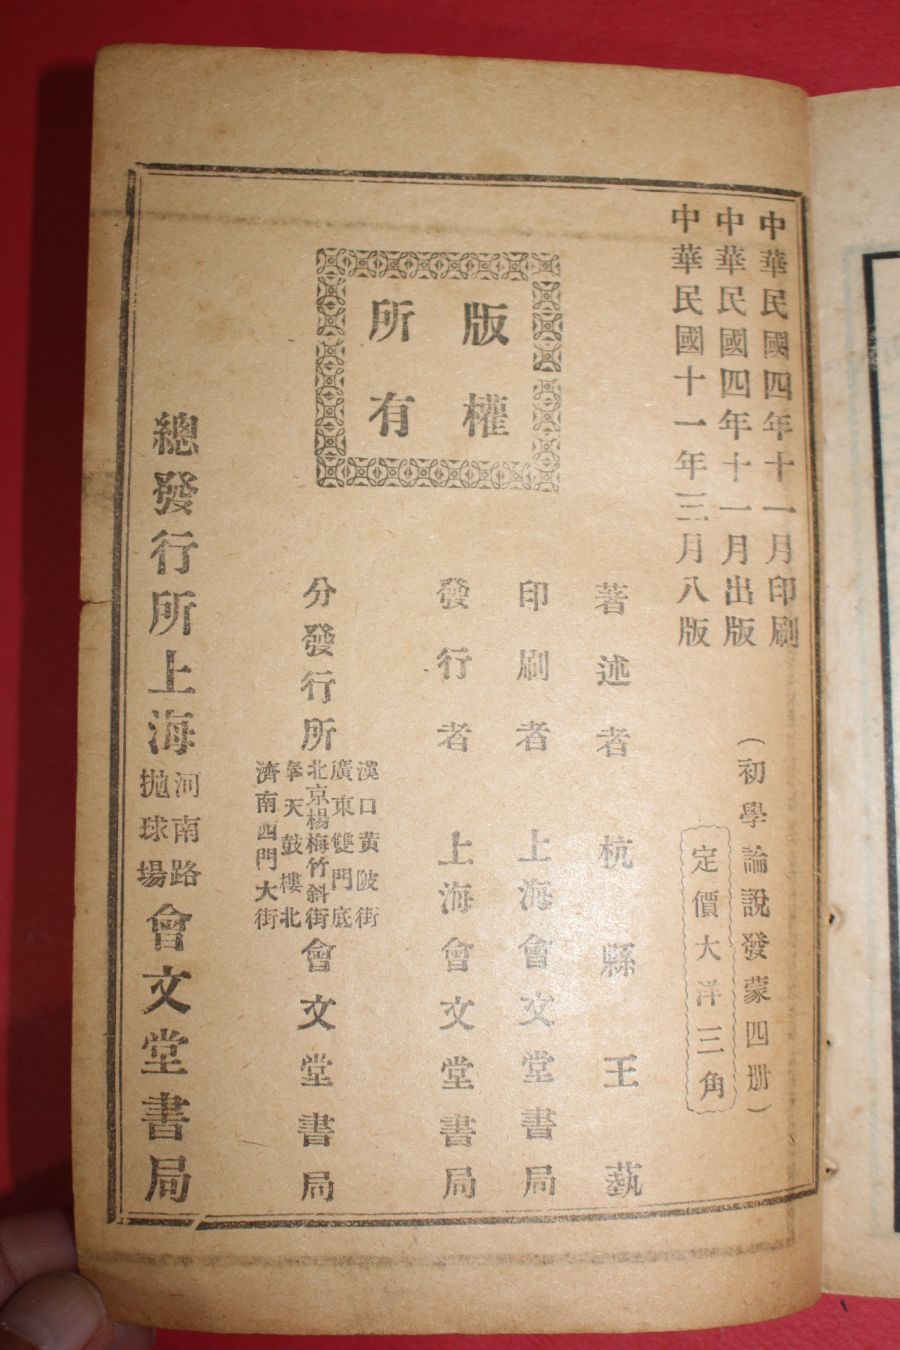 中華民國四年十一月印刷
中華民國四年十一月出版
中華民國十一年三月八版
(初學論說發蒙四册)
定價大洋三角
版權
所有
著述者 杭縣王藝
印刷者 上海會文堂書局
發行者 上海會文堂書局
分發行所
漢口黃陂街
廣東雙門底
北京楊梅竹斜街
奉天鼓樓北
濟南西門大街
會文堂書局
總發行所上海
河南路
拋球場
會文堂書局